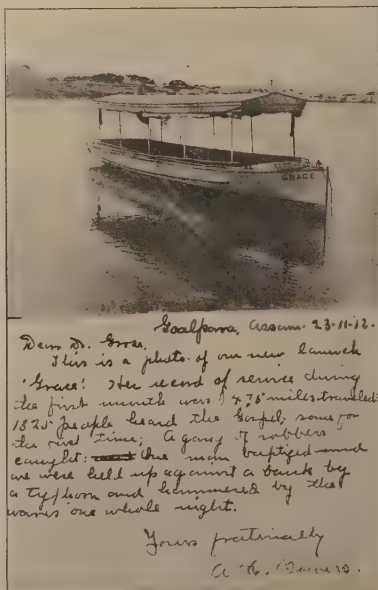 GRACE
Goalpara, Assam. 23-11-12.
Dear Dr. Grose,
This is a photo of our new launch
'Grace'. Her record of service during
the first month was; 475 miles traveled
1825 people heard the Gospel; some for
the first time; A gang of robbers
caught; One man baptized and
we were held up against a bank by
a typhoon and hammered by the
waves one whole night.
Yours fraternally
A. E.